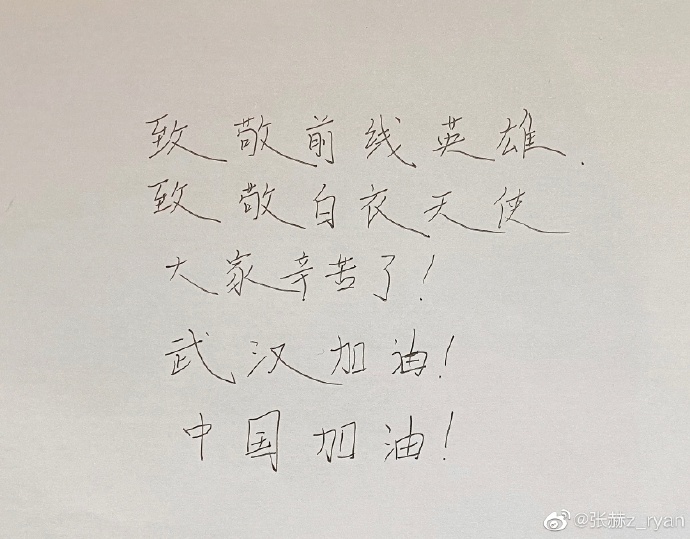 致敬前线英雄.
致敬白衣天使
大家辛苦了!
武汉加油!
中国加油!
@张赫z_ryan